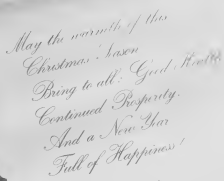 May the warmth of this
Christmas Season
Bring to all: Good Health
Continued Prosperity.
And a New Year
Full of Happiness!